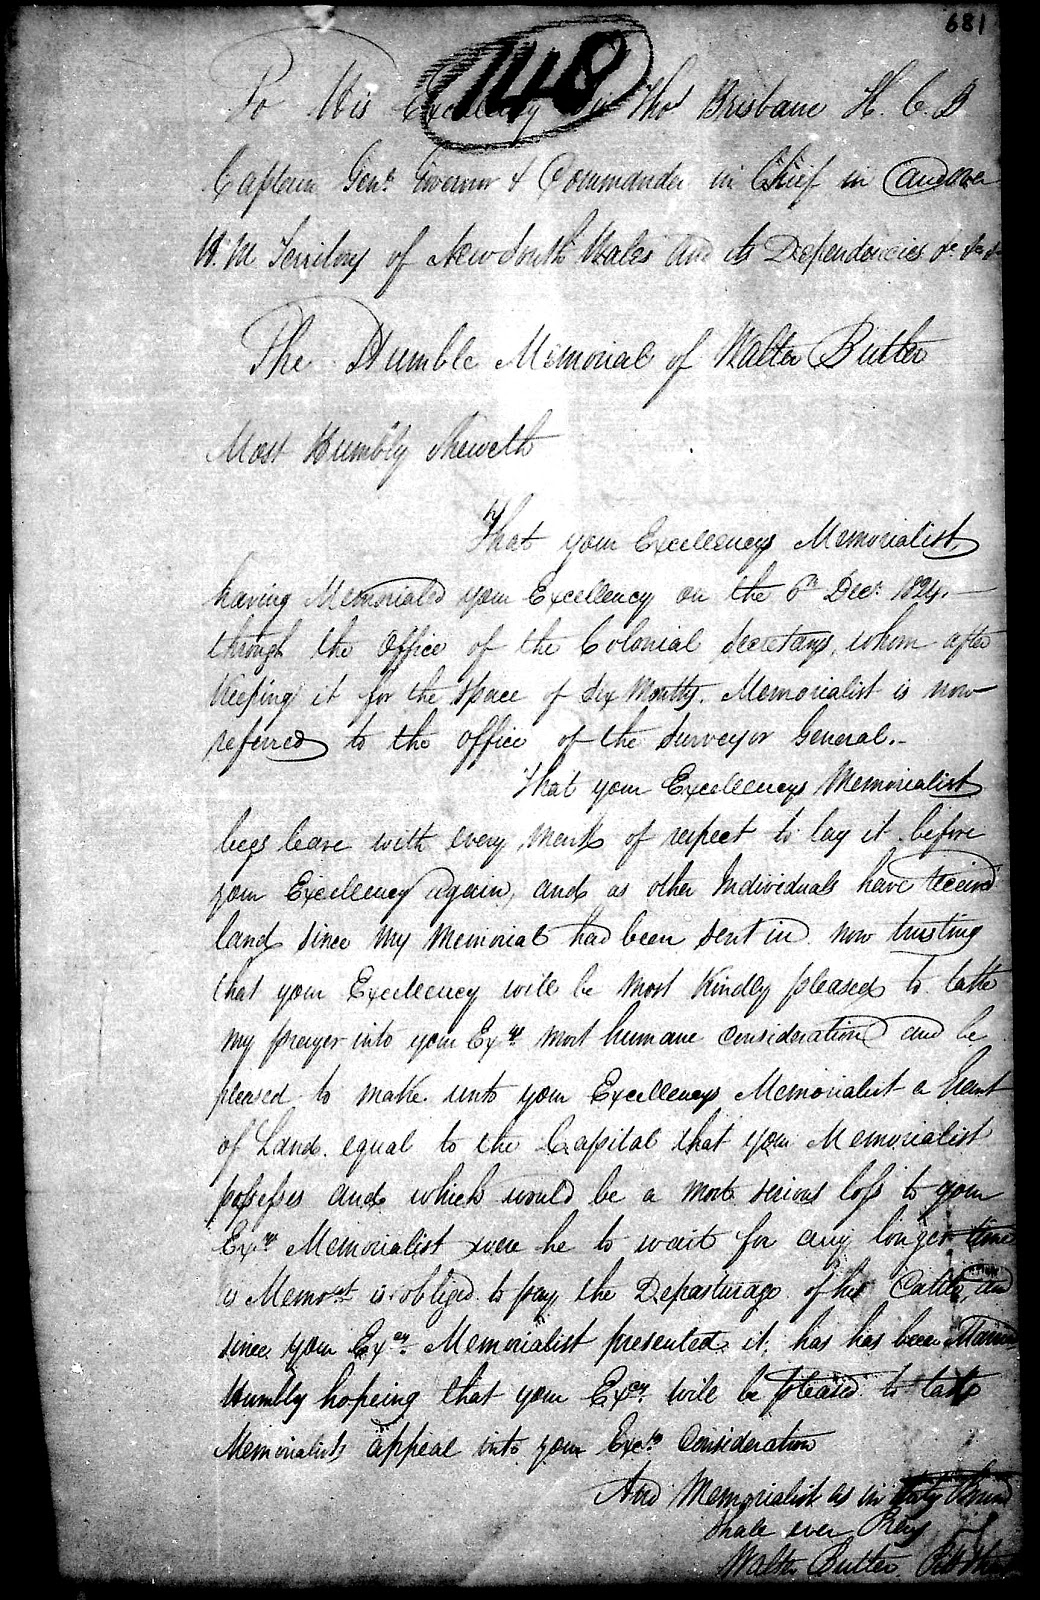 681
148
To His Excellency Sir Thos Brisbane K. C. B
Captain Genl Governor & Commander in Chief in and over
H. M Territory of New South Wales and its Dependencies &c &c &c
The Humble Memorial of Walter Butler
Most Humbly Sheweth
That your Excellencys Memorialist
having Memorialed your Excellency on the 6th Decr 1824. —
through the Office of the Colonial Secretary, whom after
keeping it for the space of six Months. Memorialist is now
referred to the Office of the Surveyor General. -
That your Excellencys Memorialist
begs leave with every Mark of respect to lay it before
your Excellency again, and as other Individuals have received
land since my Memorial had been sent in now trusting
that your Excellency will be most Kindly pleased to take
my prayer into your Excys most humane consideration and be
pleased to make unto your Excellencys Memorialist a Grant
of Land equal to the Capital that your Memorialist
possesses and which would be a most serious loss to your
Excys Memorialist were he to wait for any longer time
as Memorst is obliged to pay the Depasturage of his Cattle, and
since your Excys Memorialist presented it, has has been Married
Humbly hopeing that your Excy will be pleased to take
Memorialists appeal into your Excys Consideration
And Memorialist as in duty Bound
Shall ever Pray
Walter Butler